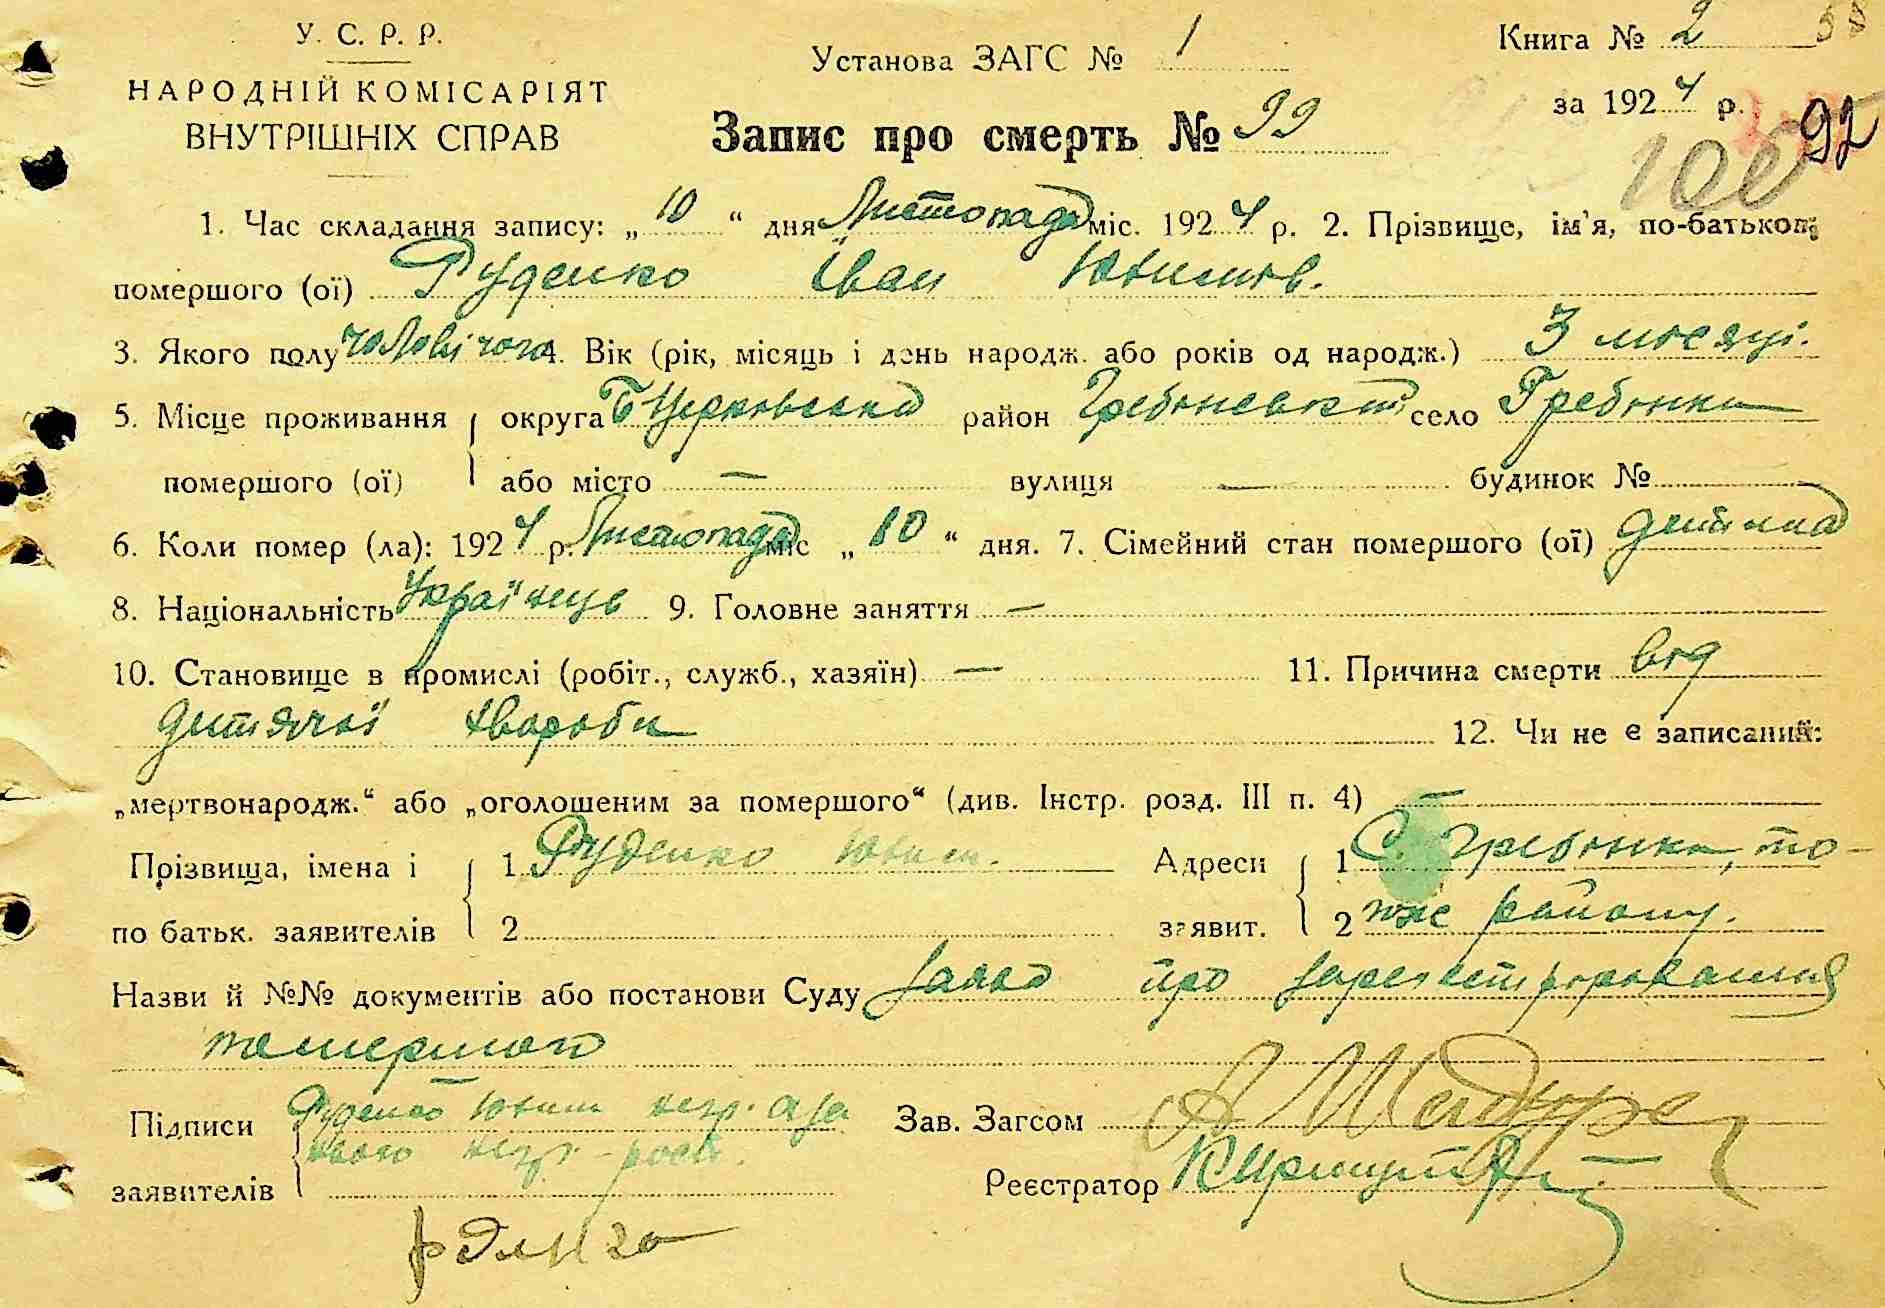 У. С. Р. Р.
НАРОДНІЙ КОМІСАРІЯТ
ВНУТРІШНІХ СПРАВ
Установа ЗАГС № 1
Книга № 2
за 1924 р.
92
100
Запис про смерть № 99
1. Час складання запису: „ 10 “ дня Листопада міс. 1924 р. 2. Прізвище, ім'я, по-батькові
помершого (ої) Руденко Іван
3. Якого полу чоловічого 4. Вік (рік, місяць і день народж. або років од народж.) 3 місяці.
5. Місце проживання округа Б Церковська район Гребінський село Гребінки
помершого (ої) або місто — вулиця — будинок №
6. Коли помер (ла): 1924 р. Листопада міс „ 10 “ дня. 7. Сімейний стан помершого (ої) дитина
8. Національність Українець 9. Головне заняття —
10. Становище в промислі (робіт., служб., хазяїн) — 11. Причина смерти від
дитячої хвороби 12. Чи не є записаний:
„мертвонародж.“ або „оголошеним за помершого“ (див. Інстр. розд. III п. 4) —
Прізвища, імена і 1 Руденко Адреси 1 С. Гребінки, то-
по батьк. заявителів 2 заявит. 2 же району.
Назви й №№ документів або постанови Суду заява про зареєстрировання
помершого
Підписи Руденко Зав. Загсом
заявителів Реєстратор